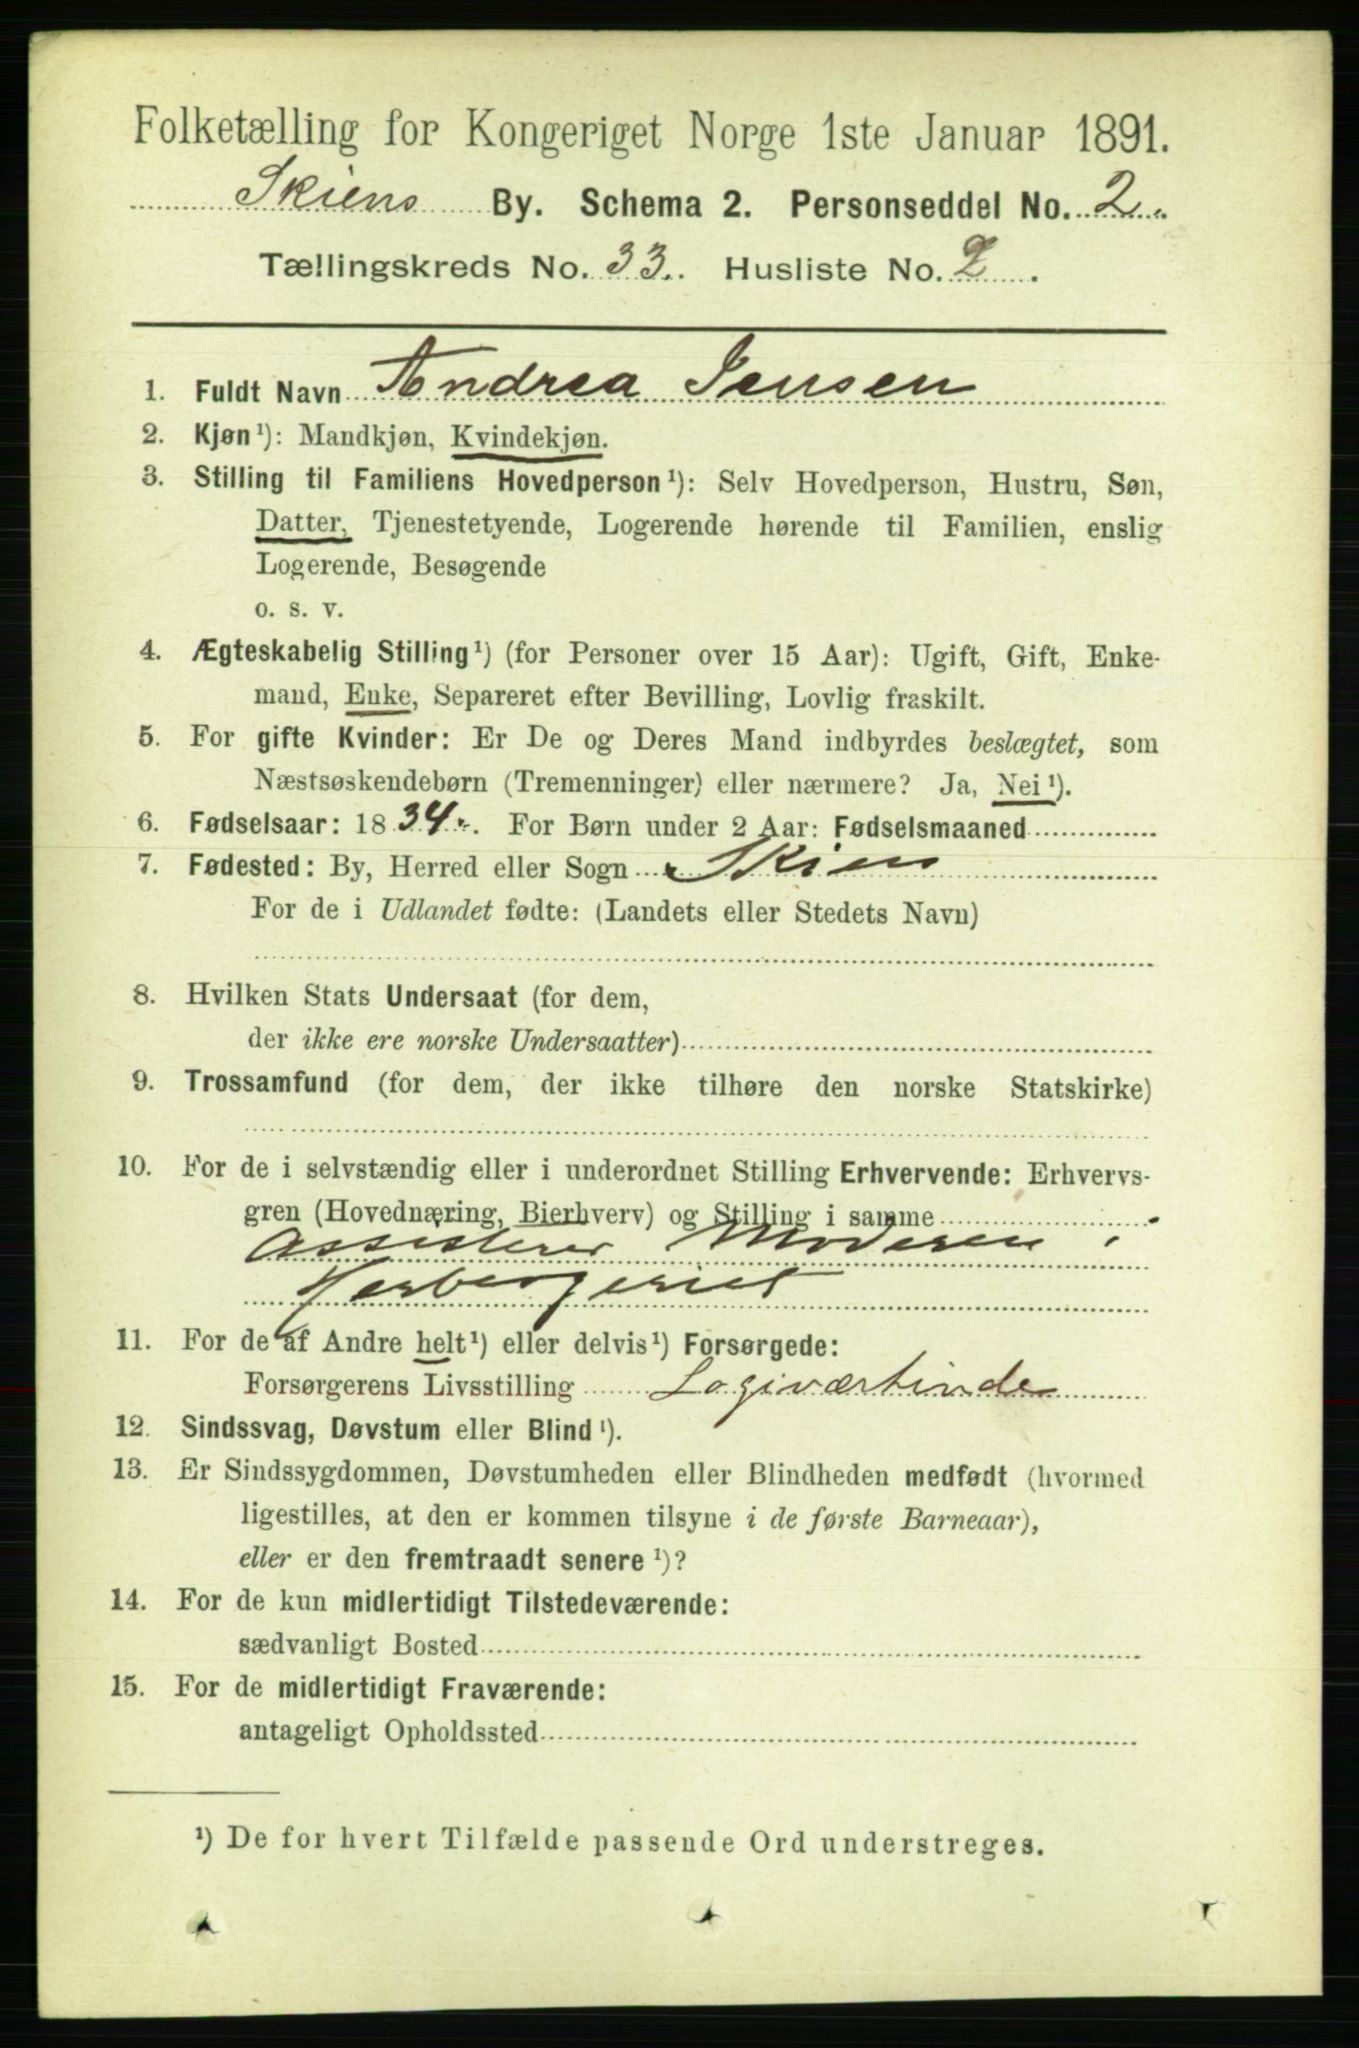 Folketælling for Kongeriget Norge 1ste Januar 1891.
Skiens By. Schema 2. Personseddel No. 2.
Tællingskreds No. 33. Husliste No. 2.
1. Fuldt Navn Andrea Jensen
2. Kjøn¹): Mandkjøn, Kvindekjøn.
3. Stilling til Familiens Hovedperson¹): Selv Hovedperson, Hustru, Søn,
Datter, Tjenestetyende, Logerende hørende til Familien, enslig
Logerende, Besøgende
o. s. v.
4. Ægteskabelig Stilling¹) (for Personer over 15 Aar): Ugift, Gift, Enke-
mand, Enke, Separeret efter Bevilling, Lovlig fraskilt.
5. For gifte Kvinder: Er De og Deres Mand indbyrdes beslægtet, som
Næstsøskendebørn (Tremenninger) eller nærmere? Ja, Nei¹).
6. Fødselsaar: 1834. For Børn under 2 Aar: Fødselsmaaned
7. Fødested: By, Herred eller Sogn Skien
For de i Udlandet fødte: (Landets eller Stedets Navn)
8. Hvilken Stats Undersaat (for dem,
der ikke ere norske Undersaatter)
9. Trossamfund (for dem, der ikke tilhøre den norske Statskirke)
10. For de i selvstændig eller i underordnet Stilling Erhvervende: Erhvervs-
gren (Hovednæring, Bierhverv) og Stilling i samme
Assisterer Moderen i
Herbergeriet
11. For de af Andre helt¹) eller delvis¹) Forsørgede:
Forsørgerens Livsstilling Logiværtinde
12. Sindssvag, Døvstum eller Blind¹).
13. Er Sindssygdommen, Døvstumheden eller Blindheden medfødt (hvormed
ligestilles, at den er kommen tilsyne i de første Barneaar),
eller er den fremtraadt senere¹)?
14. For de kun midlertidigt Tilstedeværende:
sædvanligt Bosted
15. For de midlertidigt Fraværende:
antageligt Opholdssted
¹) De for hvert Tilfælde passende Ord understreges.